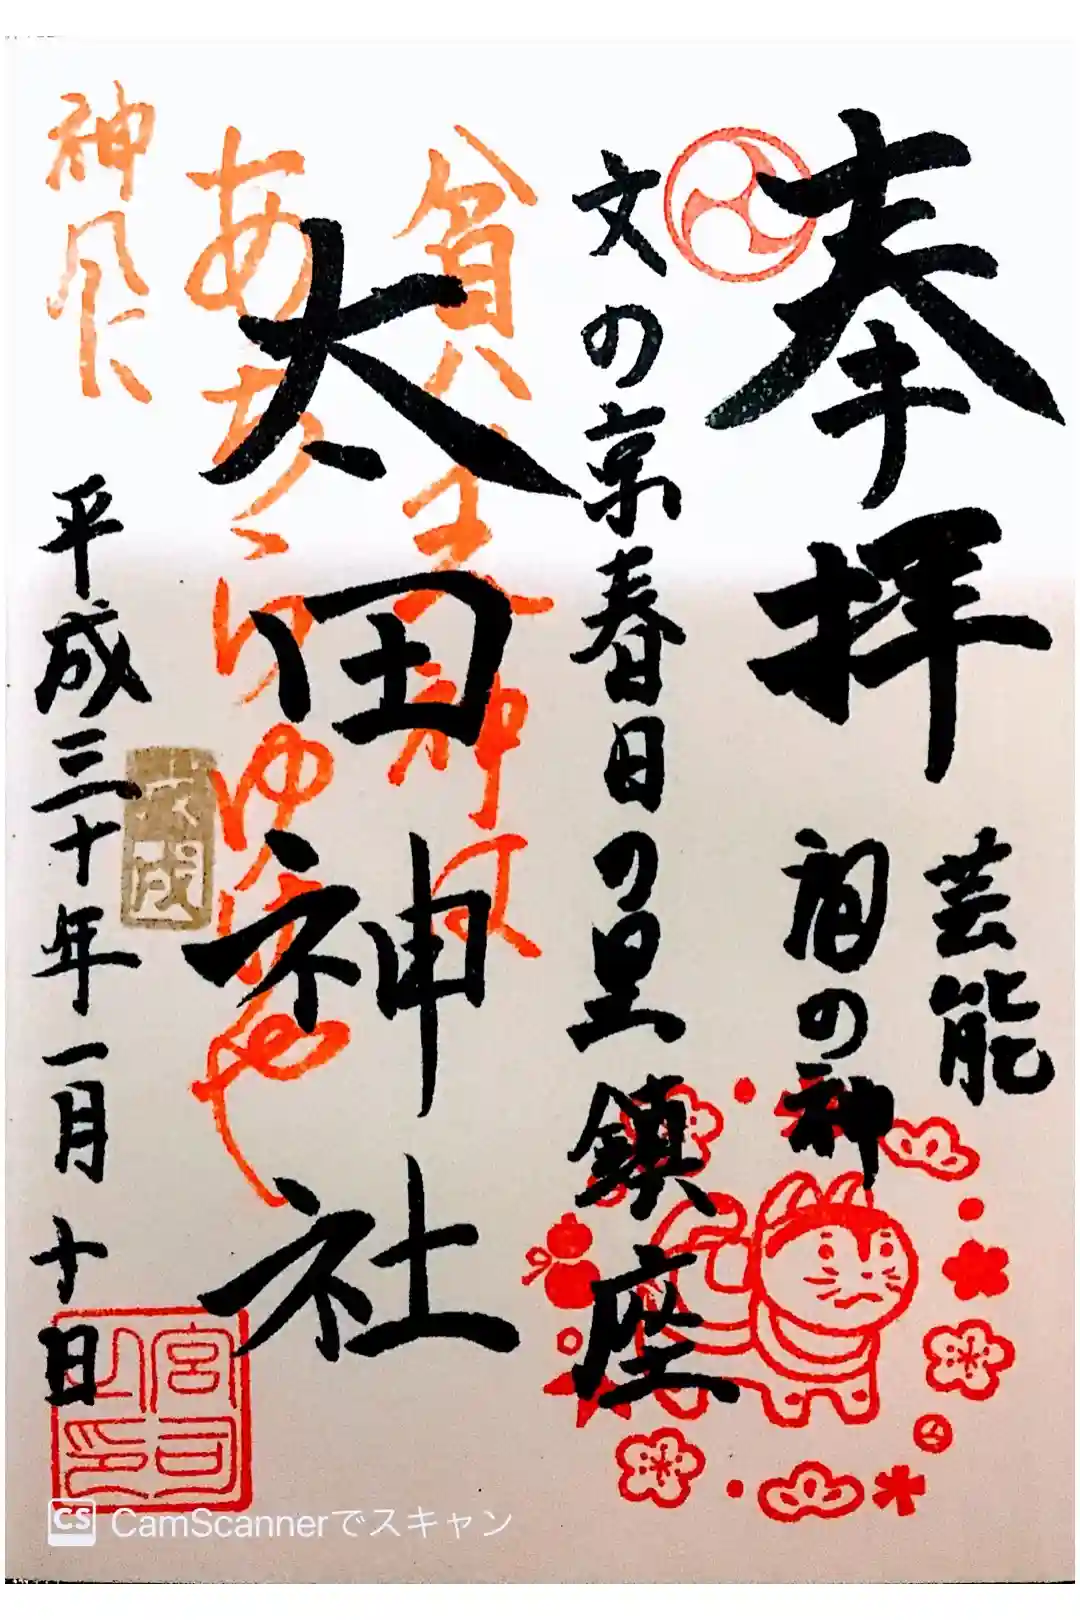 奉拝
芸能
宿の神
文の京春日の里鎮座
太田神社
貧乏神は
あちらゆけや
神風に
平成三十年一月十日
戊戌
宮司之印
CS CamScannerでスキャン